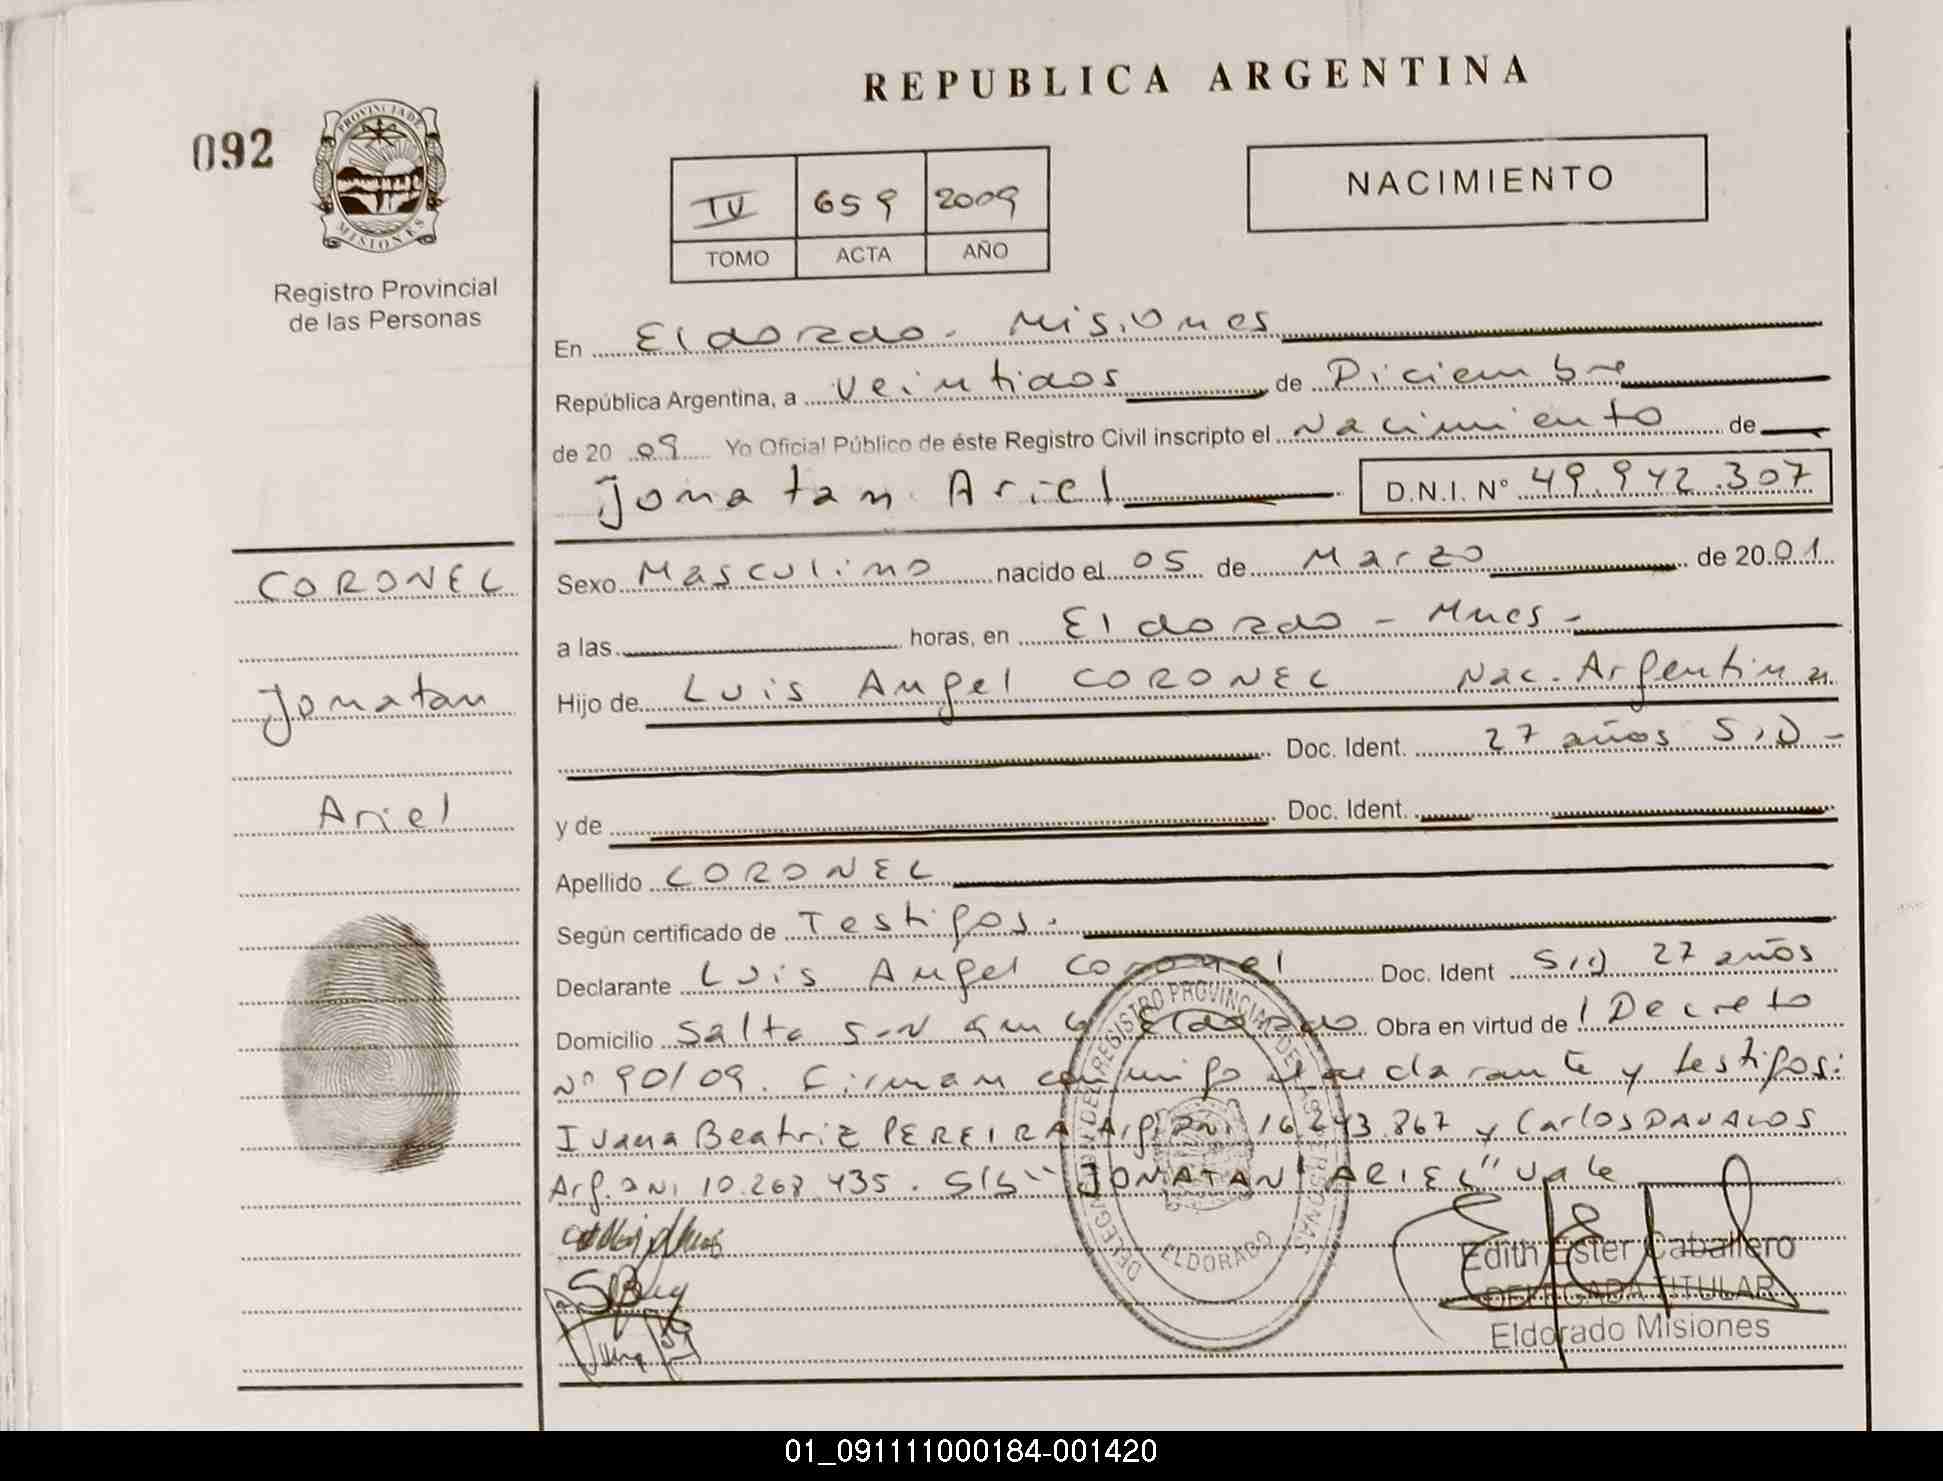 REPUBLICA ARGENTINA
092
PROVINCIA DE
MISIONES
Registro Provincial
de las Personas
IV 659 2009
TOMO ACTA AÑO
NACIMIENTO
En Eldorado - Misiones
República Argentina, a Veintidos de Diciembre
de 20 09 Yo Oficial Público de éste Registro Civil inscripto el Nacimiento de
Jonatan Ariel D.N.I. N° 49.942.307
CORONEL
Jonatan
Ariel
Sexo Masculino nacido el 05 de Marzo de 20 01
a las horas, en Eldorado - Mnes -
Hijo de Luis Angel CORONEL Nac. Argentina
Doc. Ident. 27 años S/D -
y de Doc. Ident.
Apellido CORONEL
Según certificado de Testigos.
Declarante Luis Angel Coronel Doc. Ident S/D 27 años
Domicilio Salta S-N Km 6 Eldorado Obra en virtud de Decreto
N° 90/09. Firman conmigo declarante y testigos:
Ivana Beatriz PEREIRA Arg. DNI 16.243.867 y Carlos DAVALOS
Arg. DNI 10.268.435. S/S "JONATAN ARIEL" Vale
DELEGACION DEL REGISTRO PROVINCIAL DE LAS PERSONAS
ELDORADO
Edith Ester Caballero
DELEGADA TITULAR
Eldorado Misiones
01_091111000184-001420